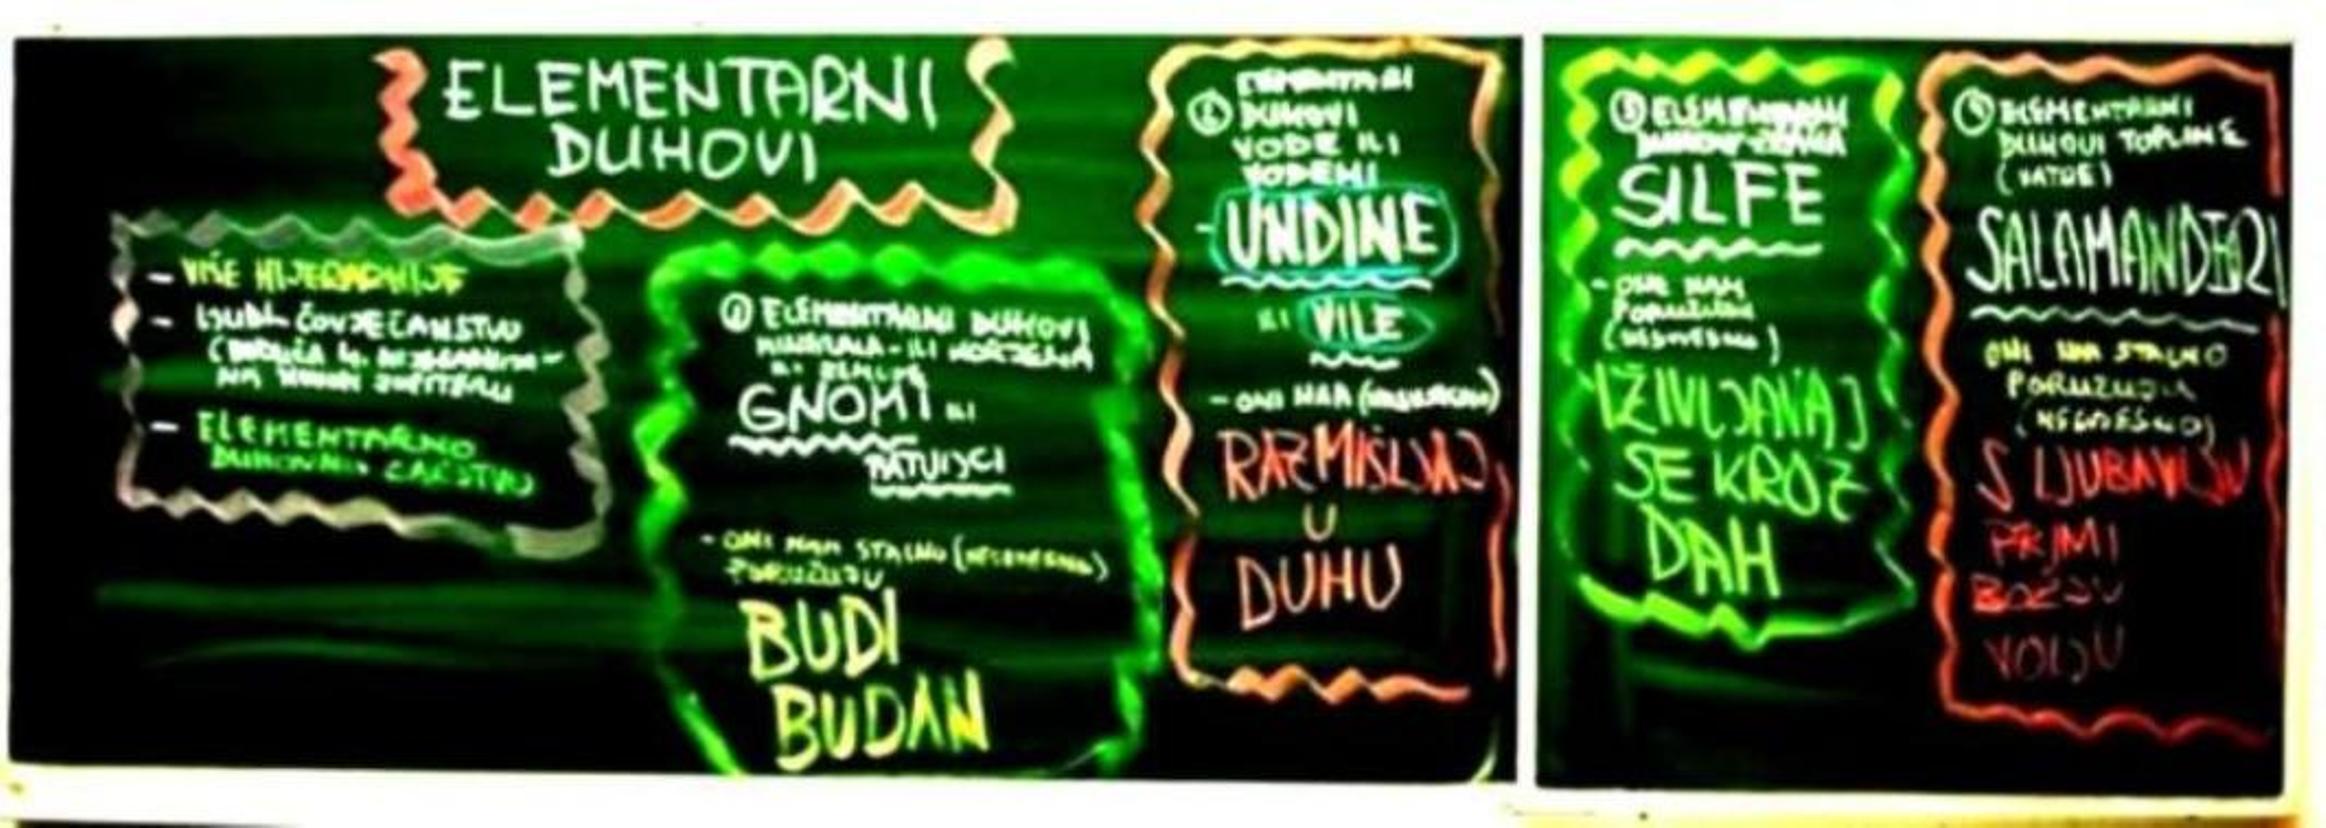 ELEMENTARNI
DUHOVI
- VIŠE HIJERARHIJE
- LJUDI - ČOVJEČANSTVO
(BUDUĆA 4. HIJERARHIJA -
NA JUPITERU
- ELEMENTARNO
DUHOVNO CARSTVO
① ELEMENTARNI DUHOVI
MINERALA - ILI KORIJENJA
ILI ZEMLJE
GNOMI ILI
PATULJCI
- ONI NAM STALNO (NESVJESNO)
PORUČUJU
BUDI
BUDAN
② ELEMENTARNI
DUHOVI
VODE ILI
VODENI
- UNDINE
ILI VILE
- ONI NAM (NESVJESNO)
RAZMIŠLJAJ
U
DUHU
③ ELEMENTARNI
DUHOVI ZRAKA
SILFE
- ONE NAM
PORUČUJU
(NESVJESNO)
IŽIVLJAVAJ
SE KROZ
DAH
④ ELEMENTARNI
DUHOVI TOPLINE
(VATRE)
SALAMANDERI
ONI NAM STALNO
PORUČUJU
(NESVJESNO)
S LJUBAVLJU
PRIMI
BOŽJU
VOLJU